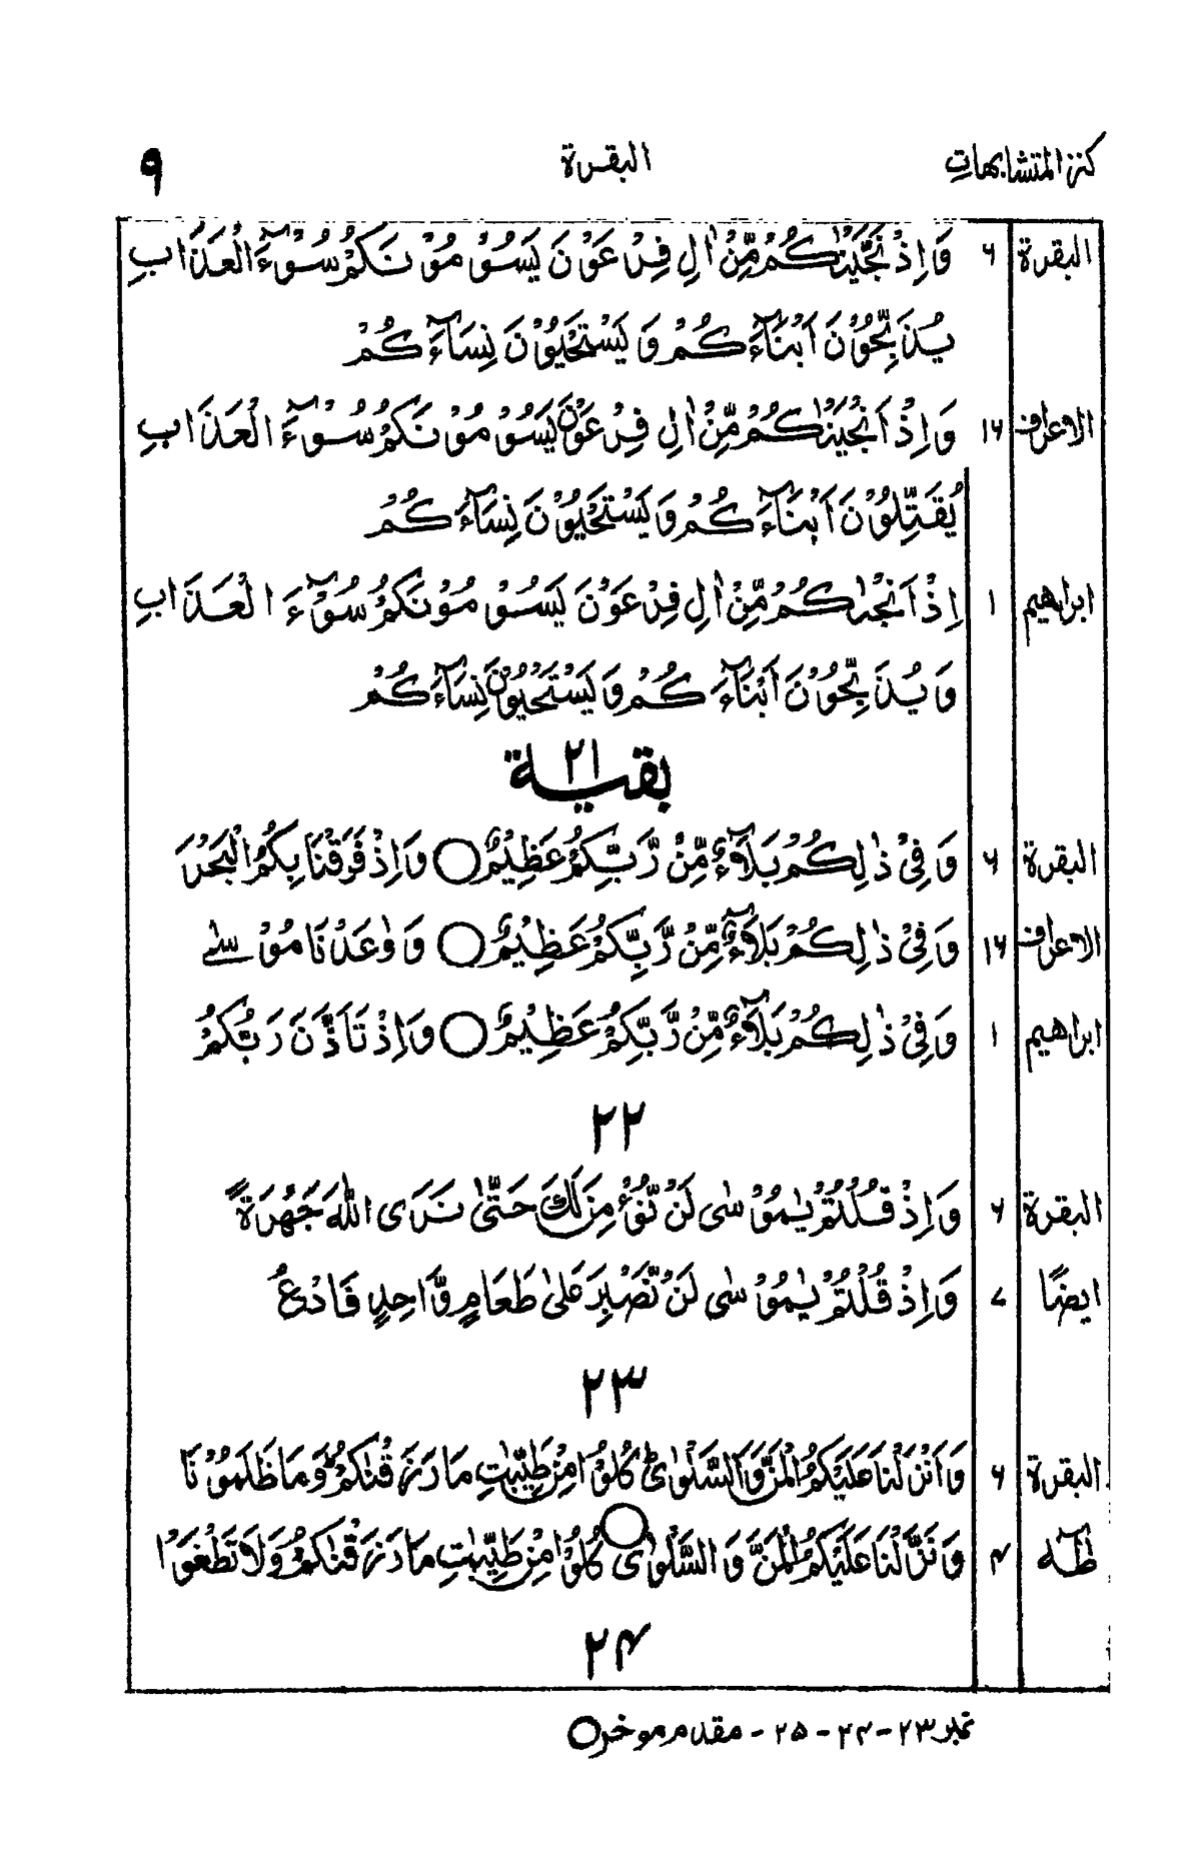 كنز المتشابهات البقرة ٩
البقرة ۶ وَاِذْ نَجَّيْنٰكُمْ مِّنْ اٰلِ فِرْعَوْنَ يَسُوْمُوْنَكُمْ سُوْٓءَ الْعَذَابِ
يُذَبِّحُوْنَ اَبْنَآءَكُمْ وَيَسْتَحْيُوْنَ نِسَآءَكُمْ
الاعراف ۱۶ وَاِذْ اَنْجَيْنٰكُمْ مِّنْ اٰلِ فِرْعَوْنَ يَسُوْمُوْنَكُمْ سُوْٓءَ الْعَذَابِ
يُقَتِّلُوْنَ اَبْنَآءَكُمْ وَيَسْتَحْيُوْنَ نِسَآءَكُمْ
ابراهيم ۱ اِذْ اَنْجٰىكُمْ مِّنْ اٰلِ فِرْعَوْنَ يَسُوْمُوْنَكُمْ سُوْٓءَ الْعَذَابِ
وَيُذَبِّحُوْنَ اَبْنَآءَكُمْ وَيَسْتَحْيُوْنَ نِسَآءَكُمْ
بقية ۲۱
البقرة ۶ وَفِيْ ذٰلِكُمْ بَلَآءٌ مِّنْ رَّبِّكُمْ عَظِيْمٌ ○ وَاِذْ فَرَقْنَا بِكُمُ الْبَحْرَ
الاعراف ۱۶ وَفِيْ ذٰلِكُمْ بَلَآءٌ مِّنْ رَّبِّكُمْ عَظِيْمٌ ○ وَوٰعَدْنَا مُوْسٰے
ابراهيم ۱ وَفِيْ ذٰلِكُمْ بَلَآءٌ مِّنْ رَّبِّكُمْ عَظِيْمٌ ○ وَاِذْ تَاَذَّنَ رَبُّكُمْ
۲۲
البقرة ۶ وَاِذْ قُلْتُمْ يٰمُوْسٰى لَنْ نُّؤْمِنَ لَكَ حَتّٰى نَرَى اللّٰهَ جَهْرَةً
ايضًا ۷ وَاِذْ قُلْتُمْ يٰمُوْسٰى لَنْ نَّصْبِرَ عَلٰى طَعَامٍ وَّاحِدٍ فَادْعُ
۲۳
البقرة ۶ وَاَنْزَلْنَا عَلَيْكُمُ الْمَنَّ وَالسَّلْوٰى ؕ كُلُوْا مِنْ طَيِّبٰتِ مَا رَزَقْنٰكُمْ ؕ وَمَا ظَلَمُوْنَا
طٰهٰ ۴ وَنَزَّلْنَا عَلَيْكُمُ الْمَنَّ وَالسَّلْوٰى ○ كُلُوْا مِنْ طَيِّبٰتِ مَا رَزَقْنٰكُمْ وَلَا تَطْغَوْا
۲۴
نمبر ۲۳ - ۲۴ - ۲۵ - مقدم موخر ○